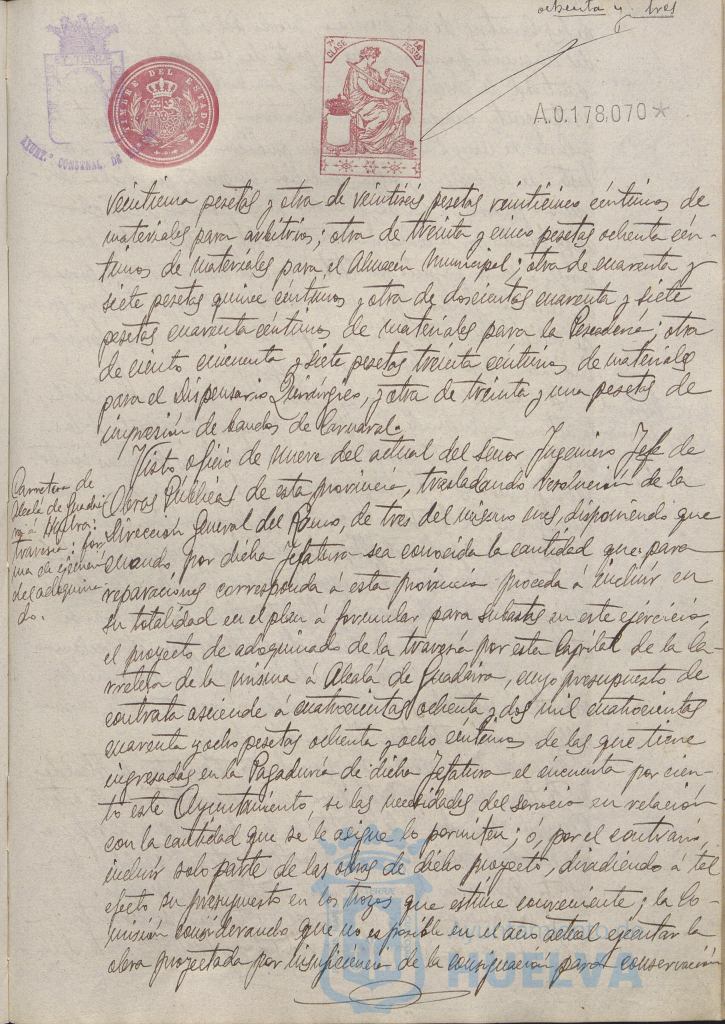 ochenta y tres
ET TERRÆ
AYUNT.º CONSTNAL. DE
TIMBRE DEL ESTADO
7ª CLASE
PESTS
A.0.178,070*
veintiuna pesetas y otra de veintiseis pesetas veinticinco céntimos de
materiales para arbitrios; otra de treinta y cinco pesetas ochenta cén-
timos de materiales para el Almacén Municipal; otra de cuarenta y
siete pesetas quince céntimos y otra de doscientas cuarenta y siete
pesetas cuarenta céntimos de materiales para la Pescadería; otra
de ciento cincuenta y siete pesetas treinta céntimos de materiales
para el Dispensario Quirúrgico, y otra de treinta y una pesetas de
impresión de bandos de Carnaval.
Visto oficio de nueve del actual del señor Ingeniero Jefe de
Obras Públicas de esta provincia, trasladando resolución de la
Dirección General del Ramo, de tres del mismo mes, disponiendo que
cuando por dicha Jefatura sea conocida la cantidad que para
reparaciones corresponda á esta provincia proceda á incluir en
su totalidad en el plan á formular para subastas en este ejercicio,
el proyecto de adoquinado de la travesía por esta Capital de la Ca-
rretera de la misma á Alcalá de Guadaira, cuyo presupuesto de
contrata asciende á cuatrocientas ochenta y dos mil cuatrocientas
cuarenta y ocho pesetas ochenta y ocho céntimos de las que tiene
ingresadas en la Pagaduría de dicha Jefatura el cincuenta por cien-
to este Ayuntamiento, si las necesidades del servicio en relación
con la cantidad que se le asigne lo permiten; ó, por el contrario,
incluir solo parte de las obras de dicho proyecto, dividiendo á tal
efecto su presupuesto en los trozos que estime conveniente; la Co-
misión considerando que no es posible en el año actual ejecutar la
obra proyectada por insuficiencia de la consignación para conservación
Carretera de
Alcalá de Guadai
ra á Huelva:
travesía: for
ma de ejecución
del adoquina
do.
HUELVA